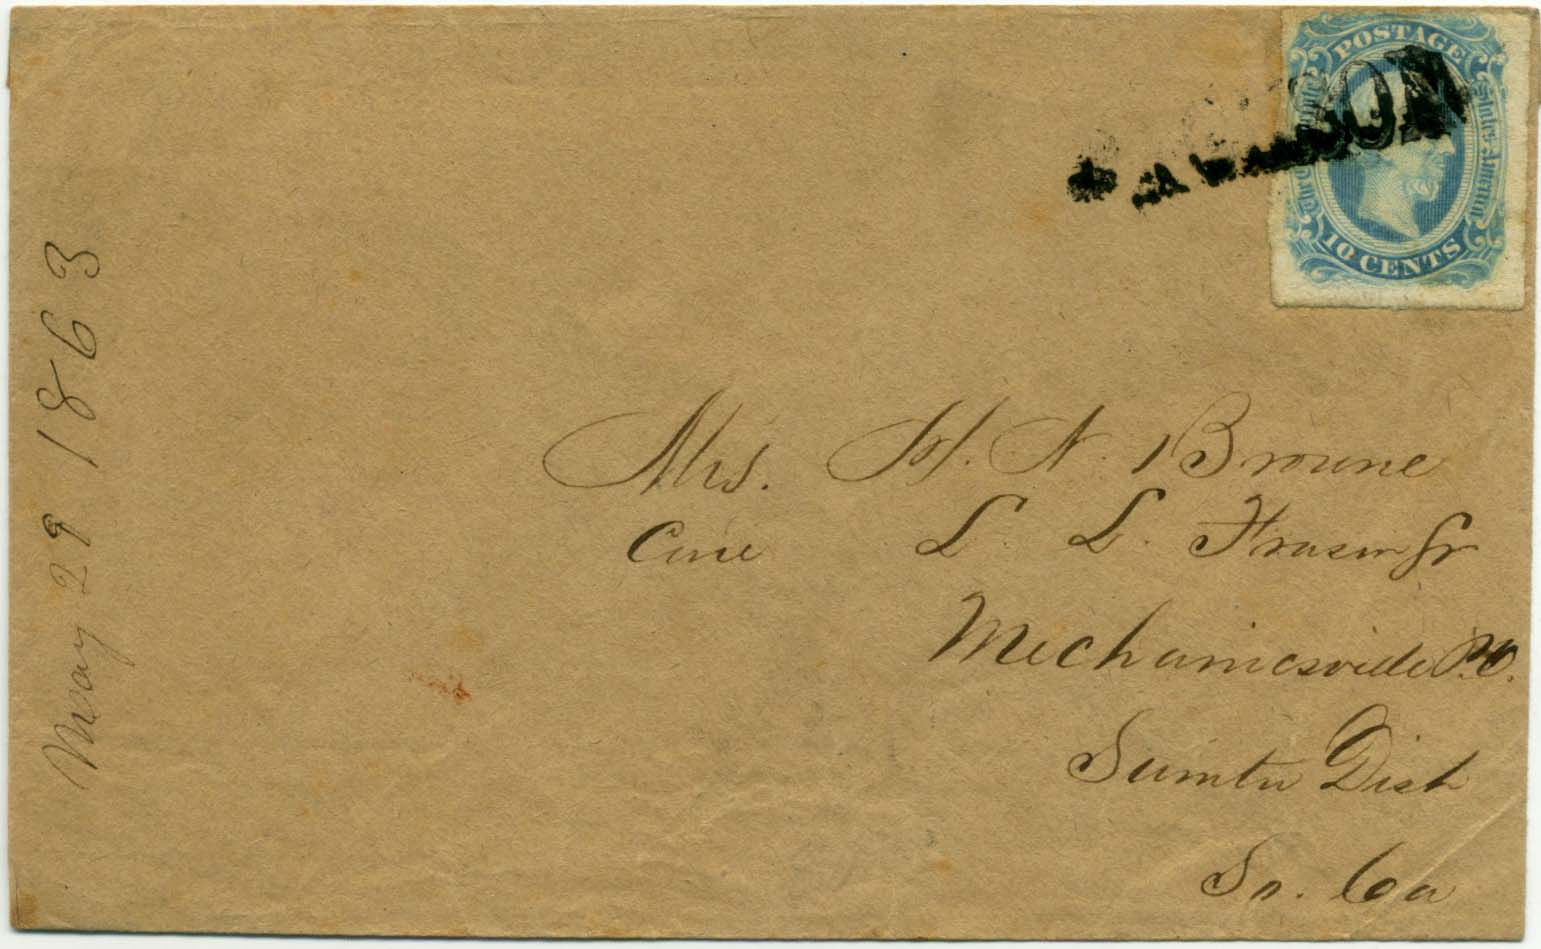 May 29 1863
POSTAGE
The Confederate States of America
10 CENTS
Mrs. H. N. Browne
Care L. L. Fraser Jr
Mechanicsville P.O.
Sumter Dist
So. Ca